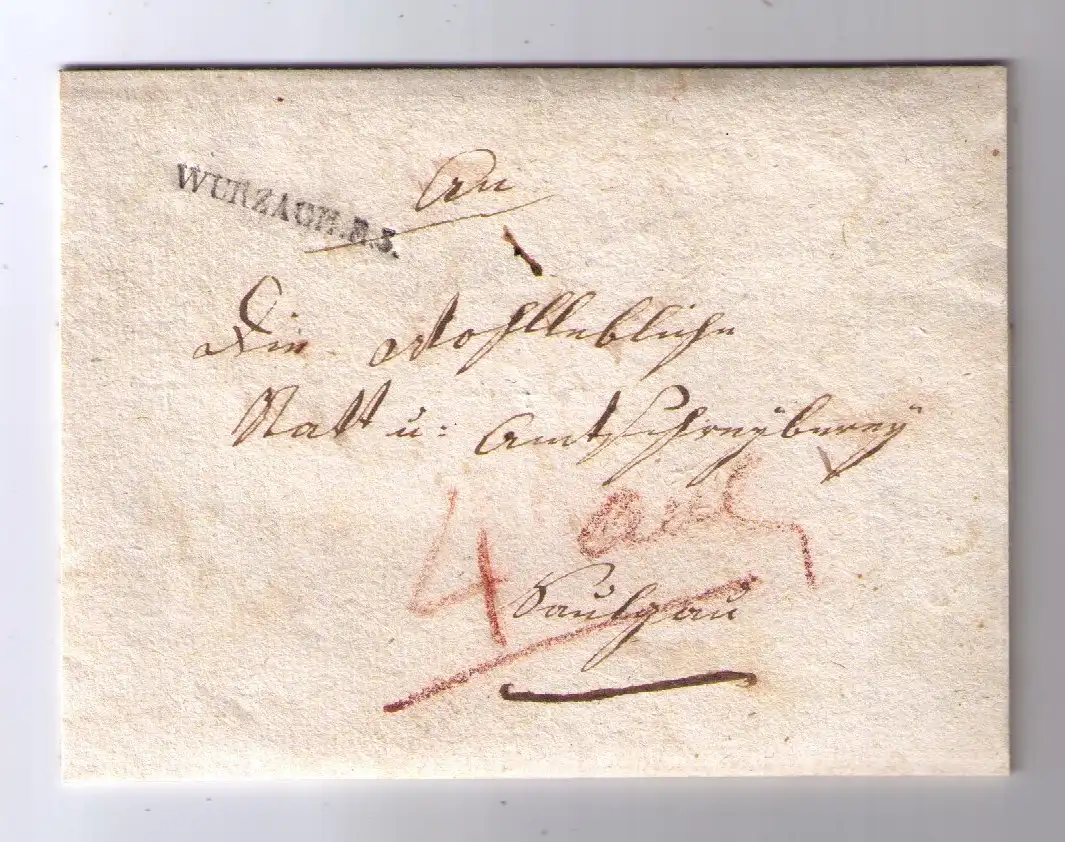 WURZACH.R.3.
An
Die Wohllebliche
Statt u: Amtschreyberey
4
Saulgau